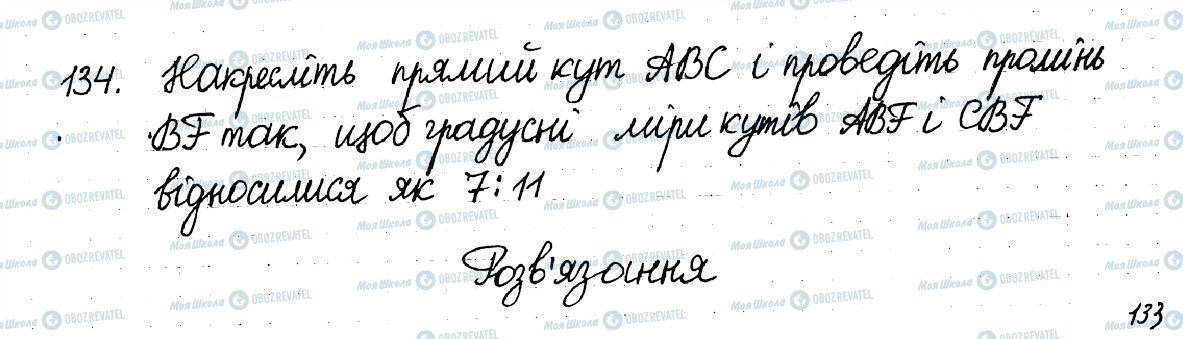 134. Накресліть прямий кут ABC і проведіть промінь
BF так, щоб градусні міри кутів ABF і CBF
відносилися як 7:11
Розв'язання
133